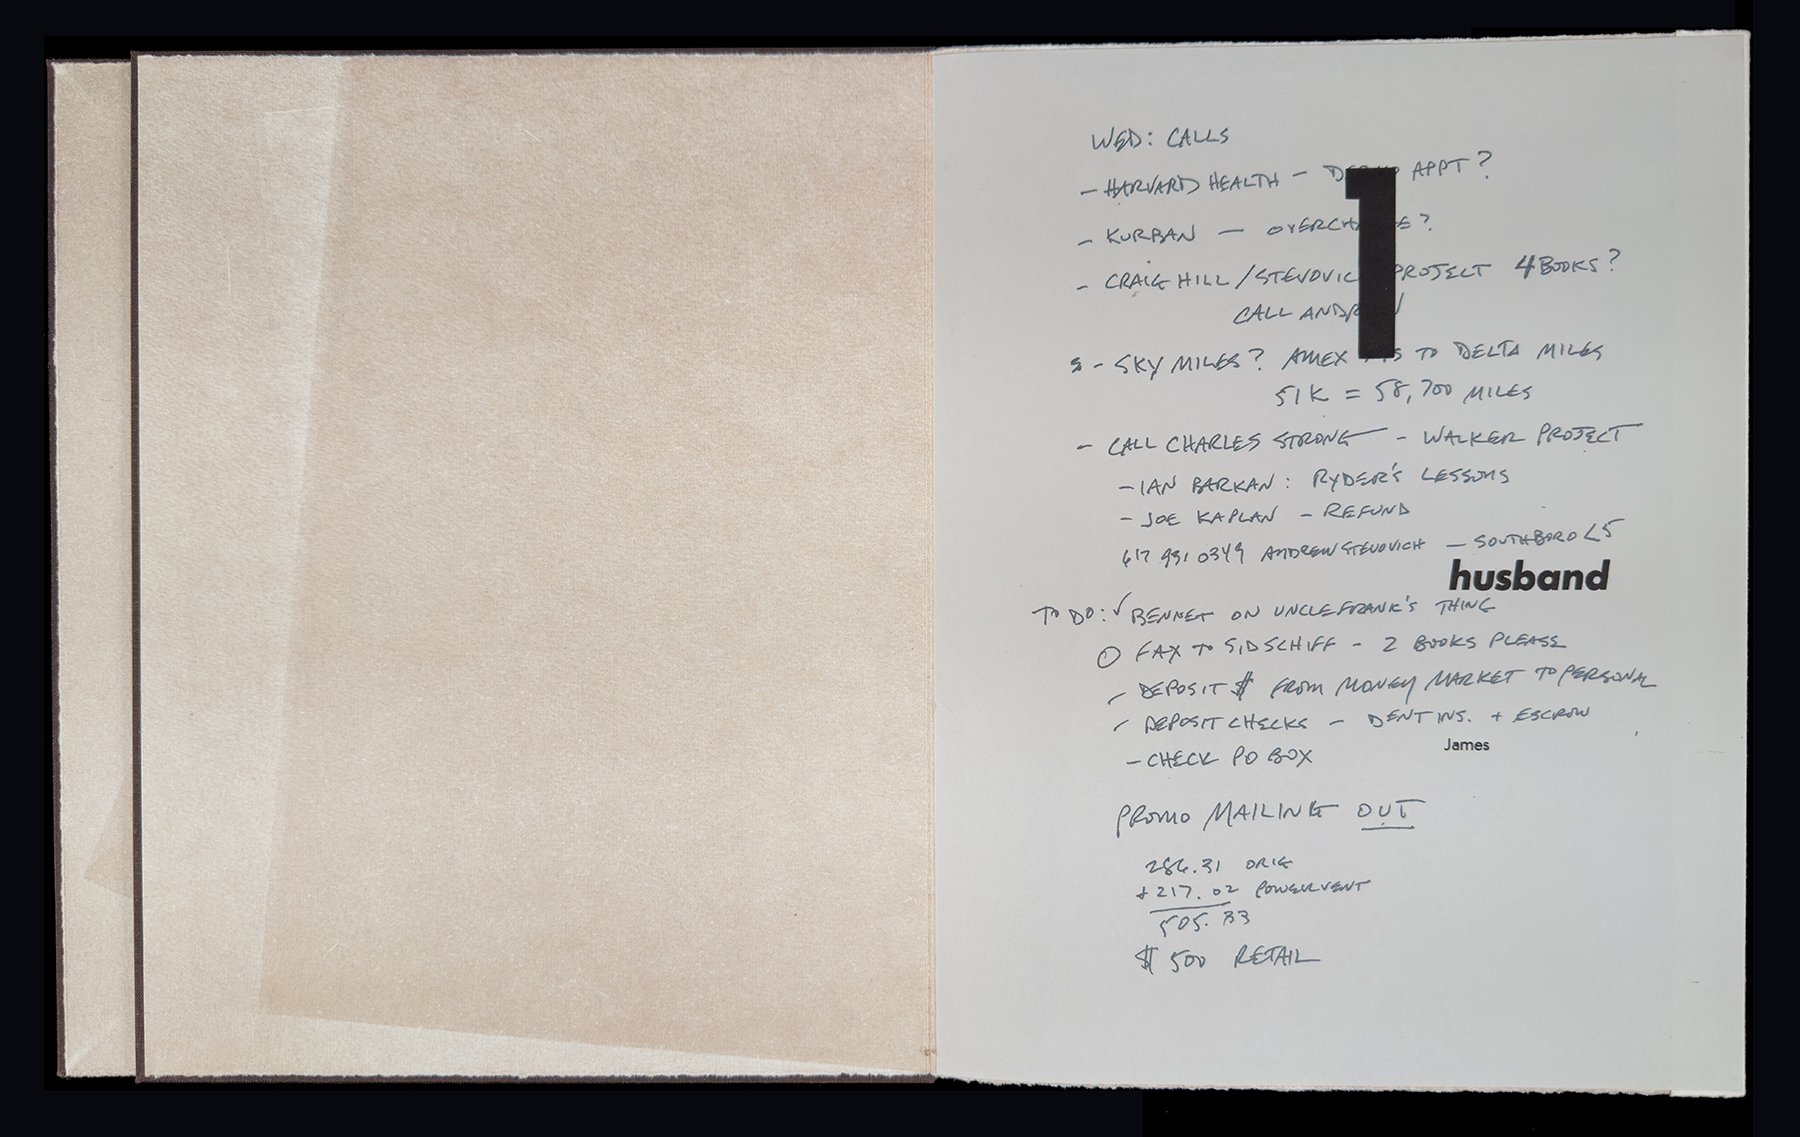 WED: CALLS
- HARVARD HEALTH - APPT?
1
- KURBAN -
- CRAIG HILL / PROJECT 4 BOOKS?
CALL
- SKY MILES? AMEX TO DELTA MILES
51K = 58,700 MILES
- CALL CHARLES STRONG - WALKER PROJECT
- IAN BARKAN: RYDER'S LESSONS
- JOE KAPLAN - REFUND
617 931 0349 ANDREW STEVOVICH - SOUTHBORO
husband
TO DO: ✓ BENNET ON UNCLE FRANK'S THING
FAX TO SID SCHIFF - 2 BOOKS PLEASE
- DEPOSIT $ FROM MONEY MARKET TO PERSONAL
- DEPOSIT CHECKS - DENT INS. + ESCROW
James
- CHECK PO BOX
PROMO MAILING OUT
286.31 ORIG
+217.02 POWERVENT
505.33
$ 500 RETAIL